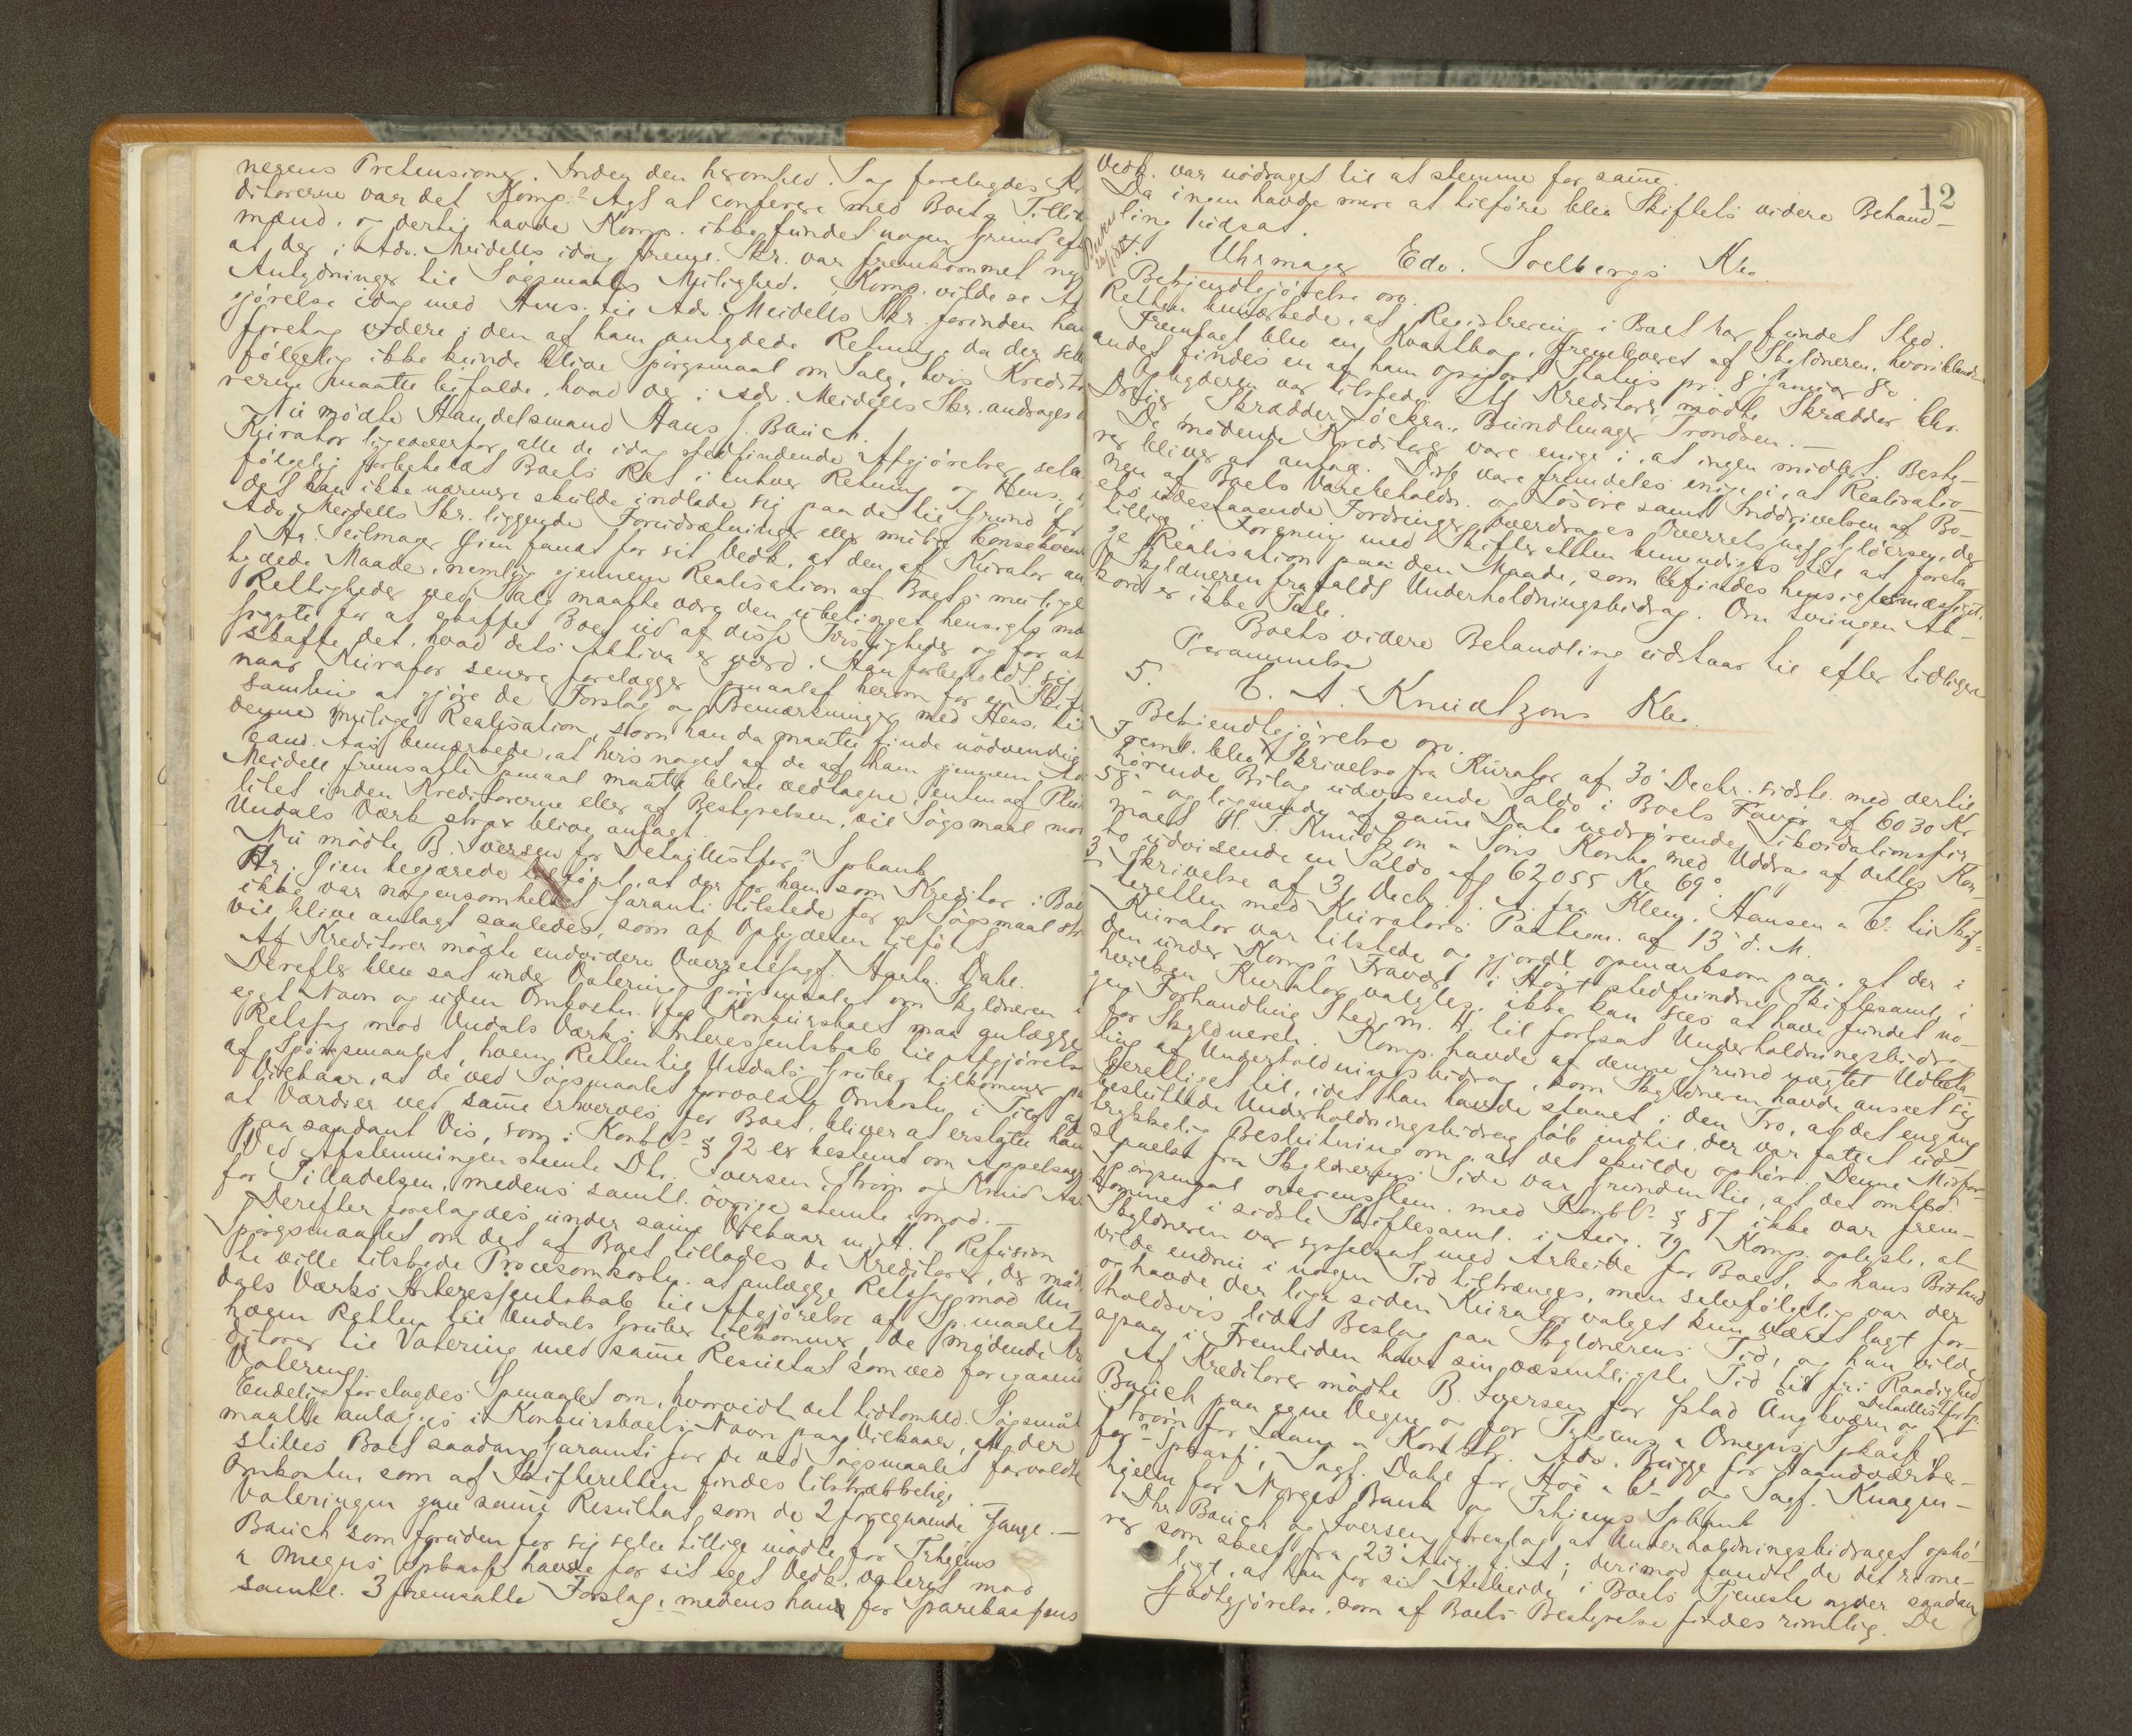 nerens Pretensioner. Inden den heromhld. Sag forelagdes Kr
ditorerne var det Komp.s Agt at conferere med Boets Tillid
mænd, og dertil havde Komp. ikke fundet nogen Grund eft
at der i Adv. Meidells idag fremp. Skr. var fremkommet nye
Antydninger til Søgsmaalets Mulighed. Komp. vilde se Af
gjørelse idag med Hens. til Adv. Meidells Skr. forinden han
foretog videre i den af ham antydede Retning, da der selv
følgelig ikke kunde blive Spørgsmaal om Salg, hvis Kredito
rerne maatte bifalde, hvad der i Adv. Meidells Skr. androges
Nu mødte Handelsmand Hans J. Bauch.
Kurator ligeoverfor alle de idag stedfindende Afgjørelser selv
følgelig forbeholdt Boets Ret i enhver Retning og Hens.
det han ikke nærmere skulde indlade sig paa de til Grund for
Adv. Meidells Skr. liggende Forudsætninger eller mulige Konsekvent
Hr. Seilmager Gien fandt for sit Vedk. at den af Kurator an
tydede Maade, nemlig gjennem Realisation af Boets mulige
Rettigheder ved Salg maatte være den ubetinget hensigtsmæ
sigste for at skaffet Boet ud af disse Tvistigheder og for at
skaffe det, hvad dets Aktiva er værd. Han forbeholdt sig
naar Kurator senere forelægger Spmaalet herom for en Skifte
samling at gjøre de Forslag og Bemærkninger med Hens. til
denne mulige Realisation, som han da maatte finde nødvendig
Cand. Aas bemærkede, at hvis noget af de af ham gjennem Adv
Meidell fremsatte Spmaal maatte blive vedtagne, enten af Plura
litet inden Kreditorerne eller af Bestyrelsen, vil Søgsmaal mod
Undals Værk strax blive anlagt.
Nu mødte B. Iversen for Detaillistfor.s Spbank
Hr. Gien begjærede tilført, at der for ham som Kreditor i Boet
ikke var nogensomhelst Garanti tilstede for at Søgsmaal str
vil blive anlagt saaledes, som af Opbyderen tilført.
Af Kreditorer mødte endvidere Overretssagf. Harb. Dahl.
Derefter blev sat under Votering Spørgsmaalet om Skyldneren i
eget Navn og uden Omkostn. for Konkursboet maa anlægge
Retssag mod Undals Værks Interessentskab til Afgjørelse
af Spørgsmaalet, hvem Retten til Undals Gruber tilkommer paa
Vilkaar, at de ved Søgsmaalet forvoldte Omkostn. i Tilf. af
at Værdier ved samme erhverves for Boet, bliver at erstatte ham
paa saadant Vis, som i Konkl.s § 92 er bestemt om Appelsager
Ved Afstemningen stemte Dhr. Iversen, Strøm og Knud Aas
for Tilladelsen, medens samtl. øvrige stemte imod. —
Derefter forelagdes under samme Vilkaar m. H. t. Refusion
Spørgsmaalet om det af Boet tillades de Kreditorer, der maat
te ville tilstede Procesomkostn. at anlægge Retssag mod Un-
dals Værks Interessentskab til Afgjørelse af Sp.maalet,
hvem Retten til Undals Gruber tilkommer, de mødende Kre
ditorer til Votering med samme Resultat som ved foregaaende
Votering.
Endelig forelagdes Spmaalet om, hvorvidt det tidtomhld. Søgsmål
maatte anlægges i Konkursboets Navn paa Vilkaar, at der
stilles Boet saadan Garanti for de ved Søgsmaalet forvoldte
Omkostn. som af Skifteretten findes tilstrækkelig.
Voteringen gav samme Resultat som de 2 foregaaende Gange. —
Bauch som foruden for sig selv tillige mødte for Trhjems
& Omegns Spkasse havde for sit eget Vedk. voteret mod
samtl. 3 fremsatte Forslag, medens han for Sparekassens
12
Vedk. var nødraget til at stemme for samme.
Da ingen havde mere at tilføre blev Skiftets videre Behand-
ling udsat.
Uhrmager Edv. Soelbergs Kbo.
Bekjendtgjørelse ov.
Retten bemærkede, at Registrering i Boet har fundet Sted.
Fremlagt blev en Kvaltbog, fremleveret af Skyldneren, hvori blandt
andet findes en af ham opgjort Status pr. 8 Januar 80.
Opbyderen var tilstede. Af Kreditorer mødte Skrædder Chr.
Dreier, Skrædder Løcken, Bundtmager Trondsen. —
De mødende Kreditorer vare enige i, at ingen midlert. Besty-
rer bliver at antage. Disse vare fremdeles enige i, at Realisatio-
nen af Boets Varebeholdn. og Løsøre samt Inddrivelsen af Bo-
ets udestaaende Fordringer overdrages Overretssagf. Gløersen, der
tillige i Forening med Skifteretten bemyndiges til at foreta-
ge Realisation paa den Maade, som befindes hensigtsmæssigst.
Skyldneren frafaldt Underholdningsbidrag. Om tvungen Ak-
kord er ikke Tale.
Boets videre Behandling udstaar til efter tidligere
Berammelse
5.
C. A. Knudtzons Kbo.
Bekjendtgjørelse ov.
Freml. blev Skrivelse fra Kurator af 30 Decbr. sidstl. med dertil
hørende Bilag udvisende Saldo i Boets Favør af 6030 Kr
58 — og lignende af samme Dato vedrørende Likvidationsfir
maet H. T. Knudtzon & Søns Konto med Uddrag af dettes Kon-
to udvisende en Saldo af 62055 Kr 69.
3 Skrivelse af 31 Decb. f. A. fra Klem. Hansen & Co. til Skif-
teretten med Kurators Paategn. af 13 d. M.
Kurator var tilstede og gjorde opmærksom paa, at der i
den under Komp.s Fravær i Høst stedfundne Skiftesaml. i
hvilken Kurator valgtes, ikke kan sees at have fundet no-
gen Forhandling Sted m. H. til fortsat Underholdningsbidr.
for Skyldneren. Komp. havde af denne Grund nægtet Udbeta-
ling af Underholdningsbidrag, som Skyldneren havde anseet sig
berettiget til, idet han havde staaet i den Tro, at det engang
besluttede Underholdningsbidrag løb indtil der var fattet ud-
trykkelig Beslutning om, at det skulde ophøre. Denne Misfor-
staaelse fra Skyldnerens Side var Grunden til, at det omhld.
Spørgsmaal overensstem. med Konkl.s § 87 ikke var frem-
kommet i sidste Skiftesaml. i Aug. 79. Komp. oplyste, at
Skyldneren var sysselsat med Arbeide for Boet, og hans Bistand
vilde endnu i nogen Tid tiltrænges, men selvfølgelig var der
og havde der lige siden Kuratorvalget kun været lagt for-
holdsvis lidet Beslag paa Skyldnerens Tid, og han vilde
ogsaa i Fremtiden have sin væsentligste Tid til fri Raadighed.
Af Kreditorer mødte B. Iversen for Ilad Angbværn og Detaillistfor.
Bauch paa egne Vegne og for Trhjems & Omegns Spkasse
Strøm for Laam & Kont. Hr. Adv. Brügge for Haandværker-
for.s Spkasse, Sagf. Dahl for Høe & Co. og Sagf. Knagen-
hjelm for Norges Bank og Trhjems Spbank
Dhr. Bauch og Iversen foreslog at Underholdningsbidraget ophø-
rer som skeet fra 23 Aug. f. A.; derimod fandt de det rime-
ligt, at han for sit Arbeide i Boets Tjeneste nyder saadan
Godtgjørelse, som af Boets Bestyrelse findes rimelig. De